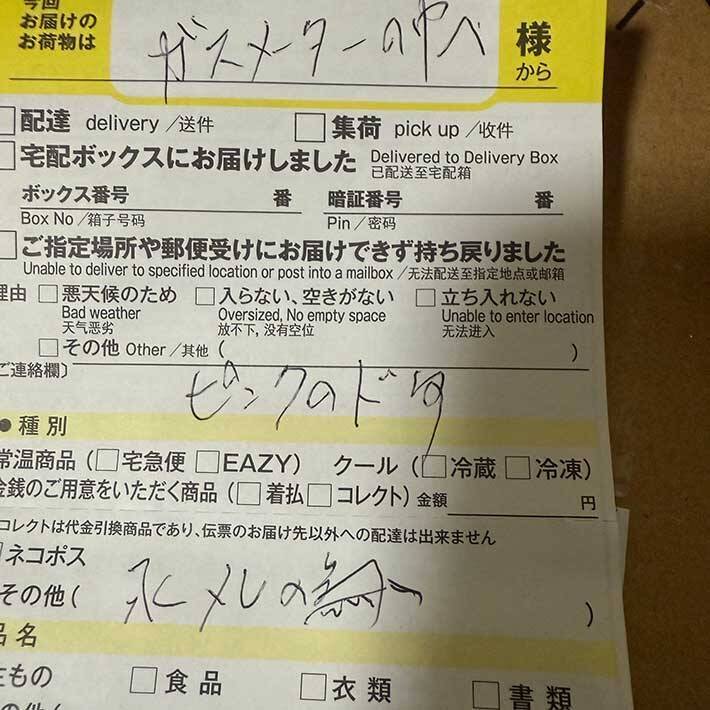 今回
お届けの
お荷物は
ガスメーターの中へ 様
から
配達 delivery /送件 集荷 pick up /收件
宅配ボックスにお届けしました Delivered to Delivery Box
已配送至宅配箱
ボックス番号 番 暗証番号 番
Box No /箱子号码 Pin /密码
ご指定場所や郵便受けにお届けできず持ち戻りました
Unable to deliver to specified location or post into a mailbox /无法配送至指定地点或邮箱
理由 悪天候のため 入らない、空きがない 立ち入れない
Bad weather Oversized, No empty space Unable to enter location
天气恶劣 放不下, 没有空位 无法进入
その他 Other /其他 ( )
ご連絡欄〕
ピンクのド
● 種別
常温商品 ( 宅急便 EAZY) クール ( 冷蔵 冷凍)
金銭のご用意をいただく商品 ( 着払 コレクト) 金額 円
コレクトは代金引換商品であり、伝票のお届け先以外への配達は出来ません
ネコポス
その他 ( の )
品名
生もの 食品 衣類 書類
の他(